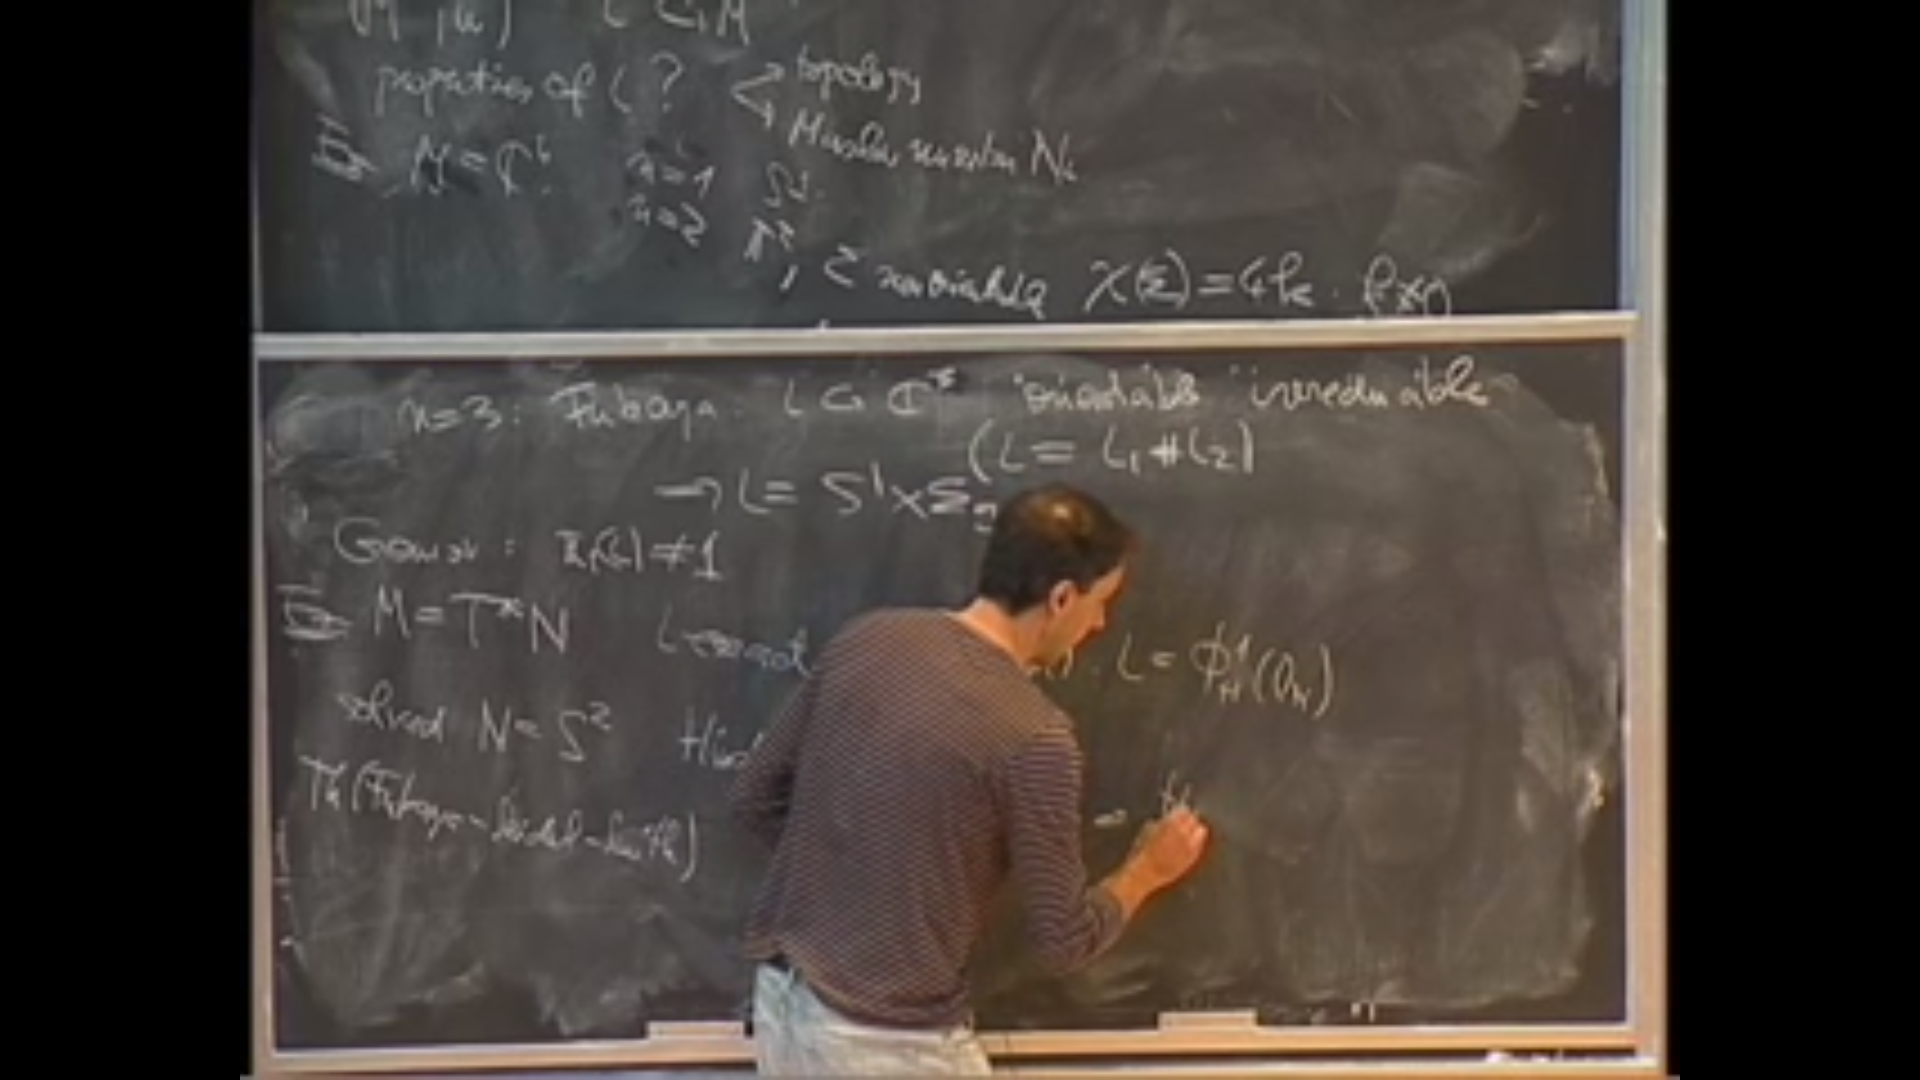 properties of L ? → topology
→ Maslov number N_L
Ex M = C^n. n=1 S^1.
n=2 T^2, Σ nonorientable χ(Σ) = 4k. k≠0
n=3: Fukaya. L ⊂ C^3 "orientable" irreducible
(L = L_1 # L_2)
→ L = S^1 × Σ_g
Gromov: π_1(L) ≠ 1
Ex M = T*N L exact L = φ_H^1(0_N)
solved N = S^2
Th (Fukaya-Seidel-Smith) →